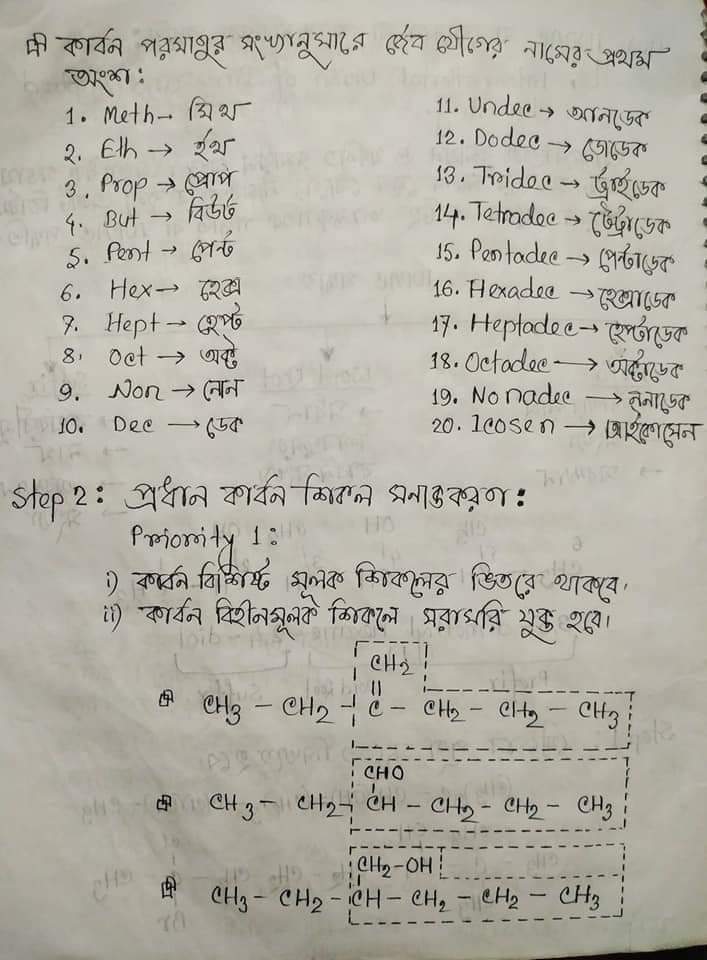 কার্বন পরমাণুর সংখ্যানুসারে জৈব যৌগের নামের প্রথম
অংশ:
1. Meth → মিথ
2. Eth → ইথ
3. Prop → প্রোপ
4. But → বিউট
5. Pent → পেন্ট
6. Hex → হেক্স
7. Hept → হেপ্ট
8. Oct → অক্ট
9. Non → নোন
10. Dec → ডেক
11. Undec → আনডেক
12. Dodec → ডোডেক
13. Tridec → ট্রাইডেক
14. Tetradec → টেট্রাডেক
15. Pentadec → পেন্টাডেক
16. Hexadec → হেক্সাডেক
17. Heptadec → হেপ্টাডেক
18. Octadec → অক্টাডেক
19. Nonadec → ননাডেক
20. Icosen → আইকোসেন
Step 2: প্রধান কার্বন শিকল সনাক্তকরণ:
Priority 1:
i) কার্বন বিশিষ্ট মূলক শিকলের ভিতরে থাকবে।
ii) কার্বন বিহীনমূলক শিকলে সরাসরি যুক্ত হবে।
CH2
||
CH3 - CH2 - C - CH2 - CH2 - CH3
CHO
CH3 - CH2 - CH - CH2 - CH2 - CH3
CH2-OH
CH3 - CH2 - CH - CH2 - CH2 - CH3